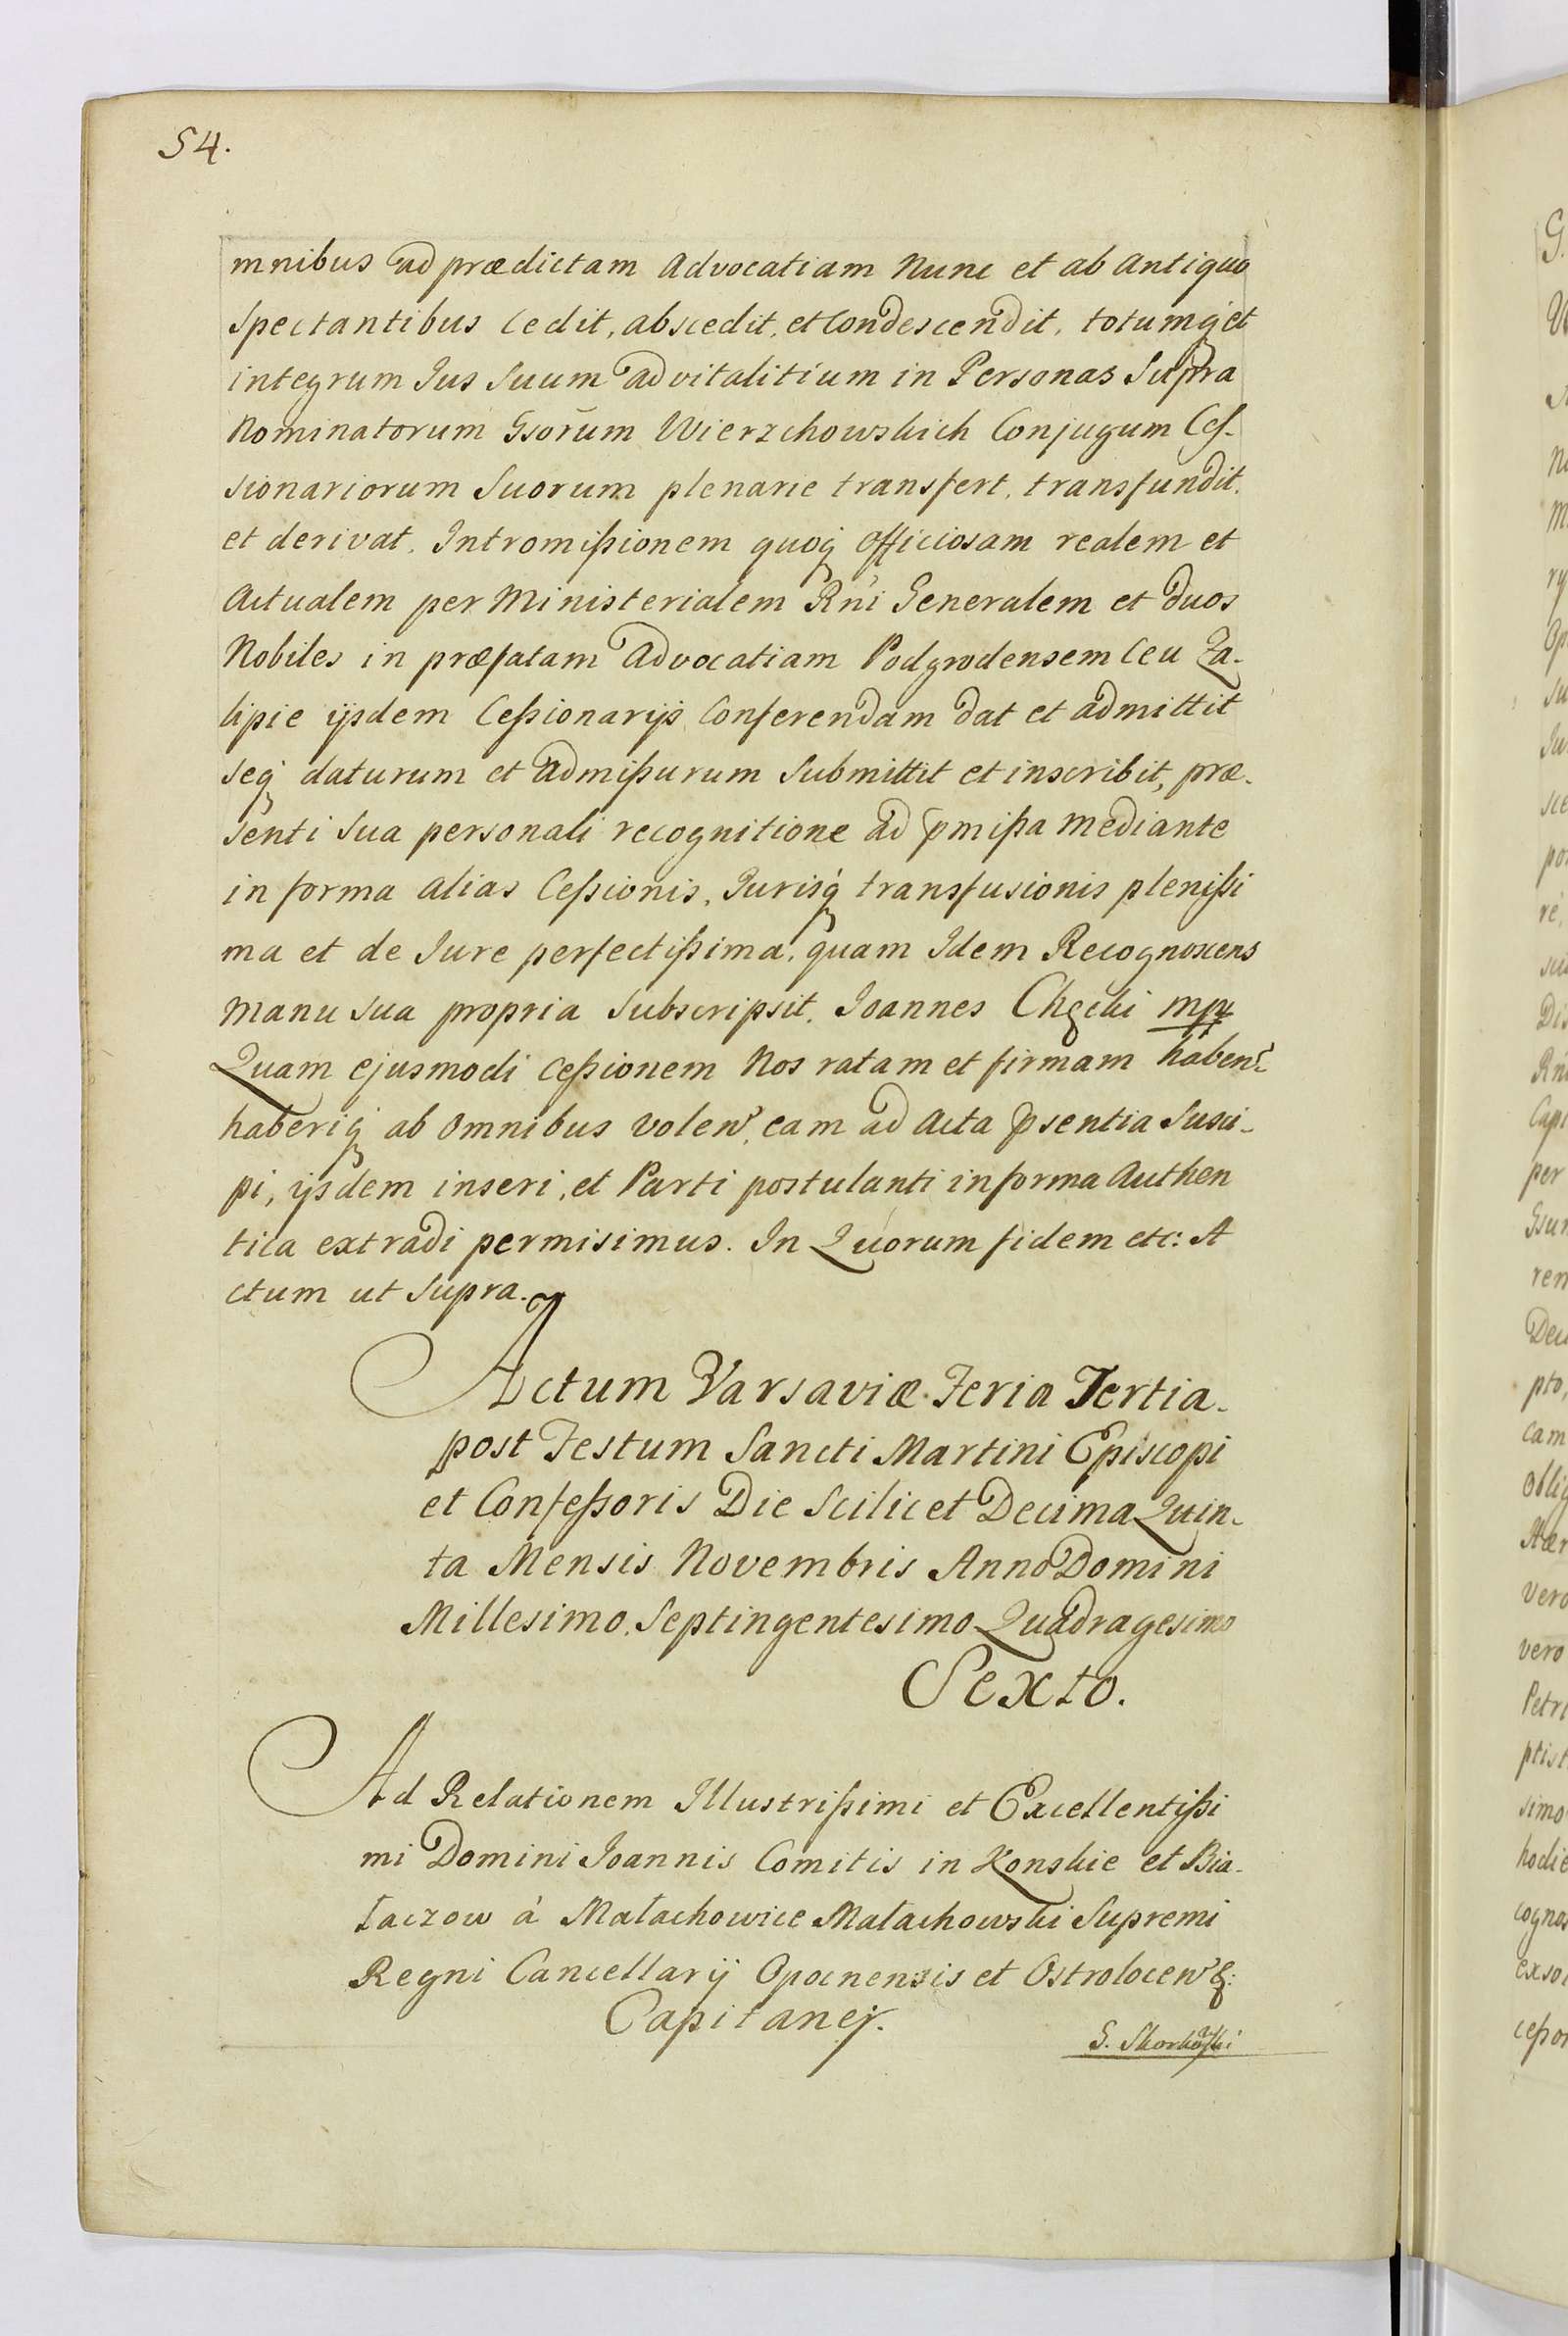 54.
mnibus ad prædictam Advocatiam Nunc et ab Antiquo
Spectantibus Cedit, abscedit, et Condescendit, totumq́ et
integrum Jus Suum advitalitium in Personas Supra
Nominatorum Gsorūm Wierzchowskich Conjugum Ces-
sionariorum Suorum plenarie transfert, transfundit,
et derivat. Intromißionem quoq́ Officiosam realem et
Actualem per Ministerialem Rńi Generalem et duos
Nobiles in præfatam Advocatiam Podgrodensem Ceu Za-
lipie ijsdem Ceßionarijs Conferendam dat et admittit
seq́ daturum et admißurum Submittit et inscribit, præ-
senti Sua personali recognitione ad pmißa mediante
in forma alias Ceßionis, Jurisq́ transfusionis plenißi
ma et de Jure perfectißima, quam Idem Recognoscens
manu sua propria Subscripsit. Joannes Chęcki mpp
Quam ejusmodi Ceßionem Nos ratam et firmam haben̄
haberiq́ ab Omnibus Volen̄, eam ad Acta psentia Susci-
pi, ijsdem inseri, et Parti postulanti in forma Authen
tica extradi permisimus. In Quorum fidem etc: A
ctum ut Supra.
Actum Varsaviæ Feria Tertia
post Festum Sancti Martini Episcopi
et Confeßoris Die Scilicet Decima Quin-
ta Mensis Novembris Anno Domini
Millesimo, Septingentesimo Quadragesimo
Sexto.
Ad Relationem Illustrißimi et Excellentißi
mi Domini Joannis Comitis in Konskie et Bia-
łaczow à Małachowice Małachowski Supremi
Regni Cancellarij Opocnensis et Ostrolocen̄ &:
Capitanej.